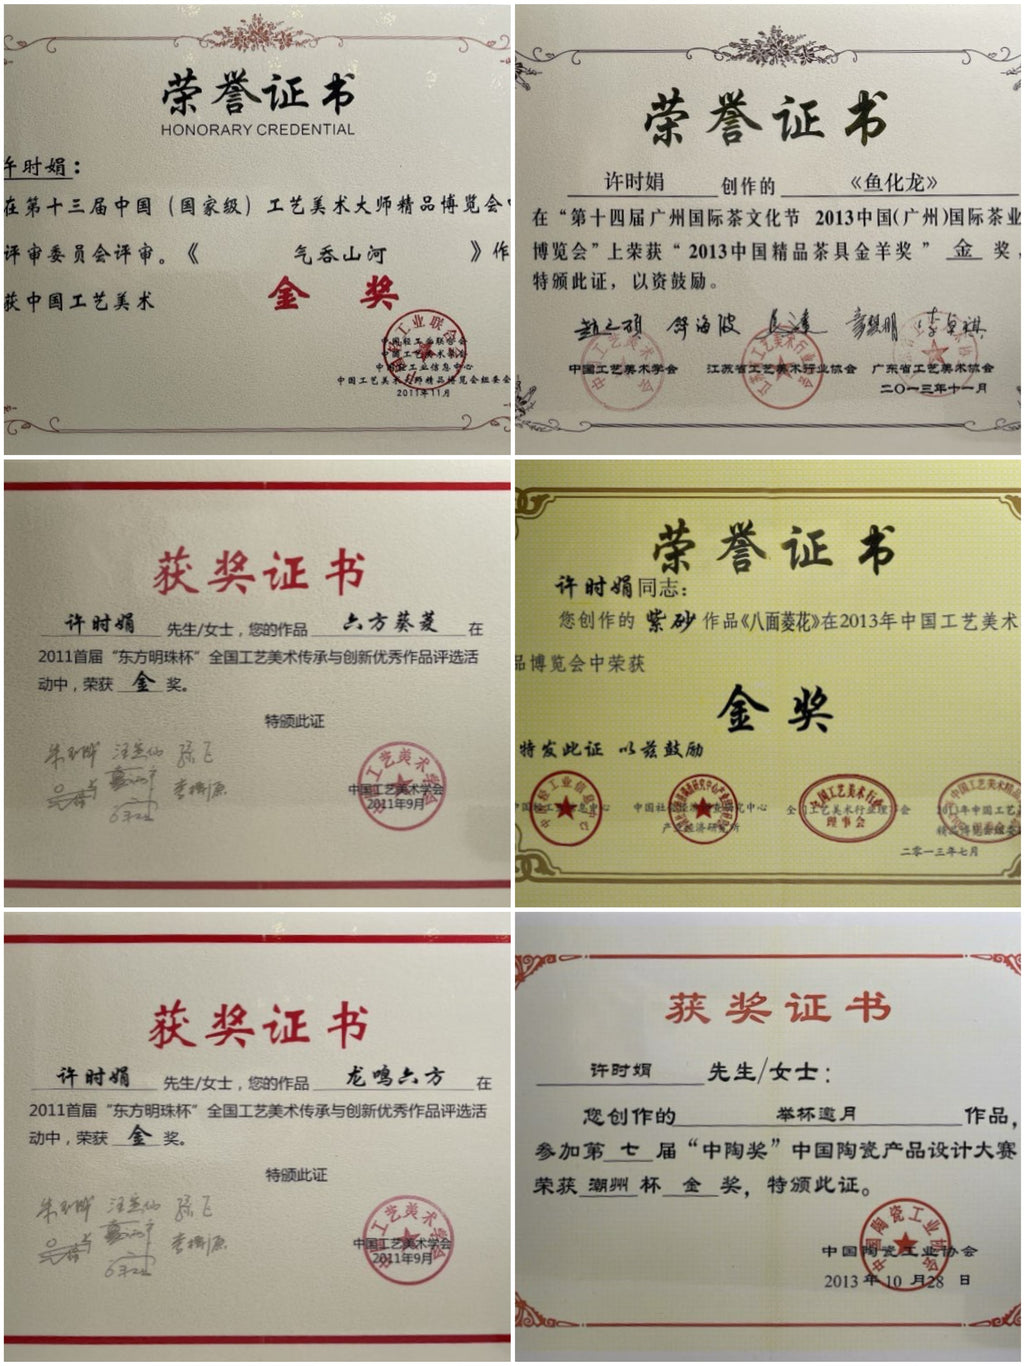 荣誉证书
HONORARY CREDENTIAL
许时娟：
在第十三届中国（国家级）工艺美术大师精品博览会
评审委员会评审。《 气吞山河 》作
获中国工艺美术 金 奖
中国轻工业联合会
中国工艺美术学会
中国轻工业信息中心
中国工艺美术大师精品博览会组委会
2011年11月
荣誉证书
许时娟 创作的 《鱼化龙》
在“第十四届广州国际茶文化节 2013中国(广州)国际茶业
博览会”上荣获“2013中国精品茶具金羊奖” 金 奖，
特颁此证，以资鼓励。
中国工艺美术学会 江苏省工艺美术行业协会 广东省工艺美术协会
二〇一三年十一月
获奖证书
许时娟 先生/女士，您的作品 六方葵菱 在
2011首届“东方明珠杯”全国工艺美术传承与创新优秀作品评选活
动中，荣获 金 奖。
特颁此证
中国工艺美术学会
2011年9月
荣誉证书
许时娟同志：
您创作的 紫砂 作品《八面菱花》在2013年中国工艺美术
品博览会中荣获
金奖
特发此证 以兹鼓励
中国轻工业信息中心
产业经济研究所
二零一三年七月
获奖证书
许时娟 先生/女士，您的作品 龙鸣六方 在
2011首届“东方明珠杯”全国工艺美术传承与创新优秀作品评选活
动中，荣获 金 奖。
特颁此证
中国工艺美术学会
2011年9月
获奖证书
许时娟 先生/女士：
您创作的 举杯邀月 作品，
参加第 七 届“中陶奖”中国陶瓷产品设计大赛
荣获 潮州 杯 金 奖，特颁此证。
中国陶瓷工业协会
2013 年 10 月28 日